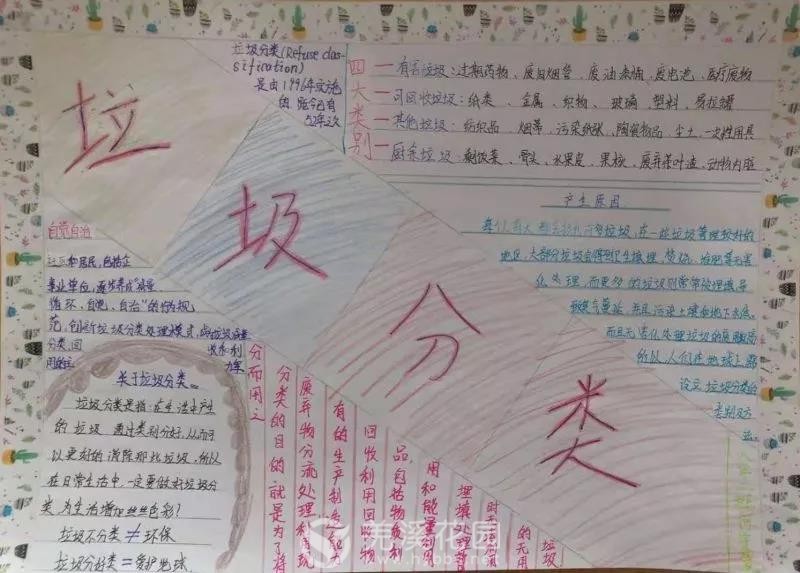 垃圾分类
垃圾分类(Refuse clas-
sification)
是由1996年实施
的 距今已有
四大类别
有害垃圾：过期药物、废旧烟草、废油漆桶、废电池、医疗废物
可回收垃圾：纸类、金属、织物、玻璃、塑料、易拉罐
其他垃圾：纺织品、烟蒂、污染纸张、陶瓷物品、尘土、一次性用具
厨余垃圾：剩饭菜、骨头、水果皮、果核、废弃茶叶渣、动物内脏
产生原因
垃圾，在一些垃圾管理较好的
地区，大部分垃圾会得到卫生填理，焚烧，堆肥等无害
化处理，而更多的垃圾则常常被
并且污染土壤和地下水底，
而且无害化处理垃圾的
所以人们在地球上
设立垃圾分类的
类别
自觉自治
社区和居民，包括企
事业单位，逐步养成"减量
循环、自觉、自治"的
范，创新垃圾分类处理模式，
分类，回
收和利
用
关于垃圾分类。
垃圾分类是指：在生活中产生
的垃圾 通过类别分好，从而可
以更好的消除那些垃圾，所以
在日常生活中，一定要做好垃圾分
类，为生活增加丝丝色彩！
垃圾不分类≠环保
垃圾分好类=爱护地球
分而用之
分类的目的就是为了将
废弃物分流处理利用现
有的生产制造能
回收利用回收物
品，包括物质利
用和能量利用
填埋处置暂
时无法利用
的无用
垃圾
芜溪花园